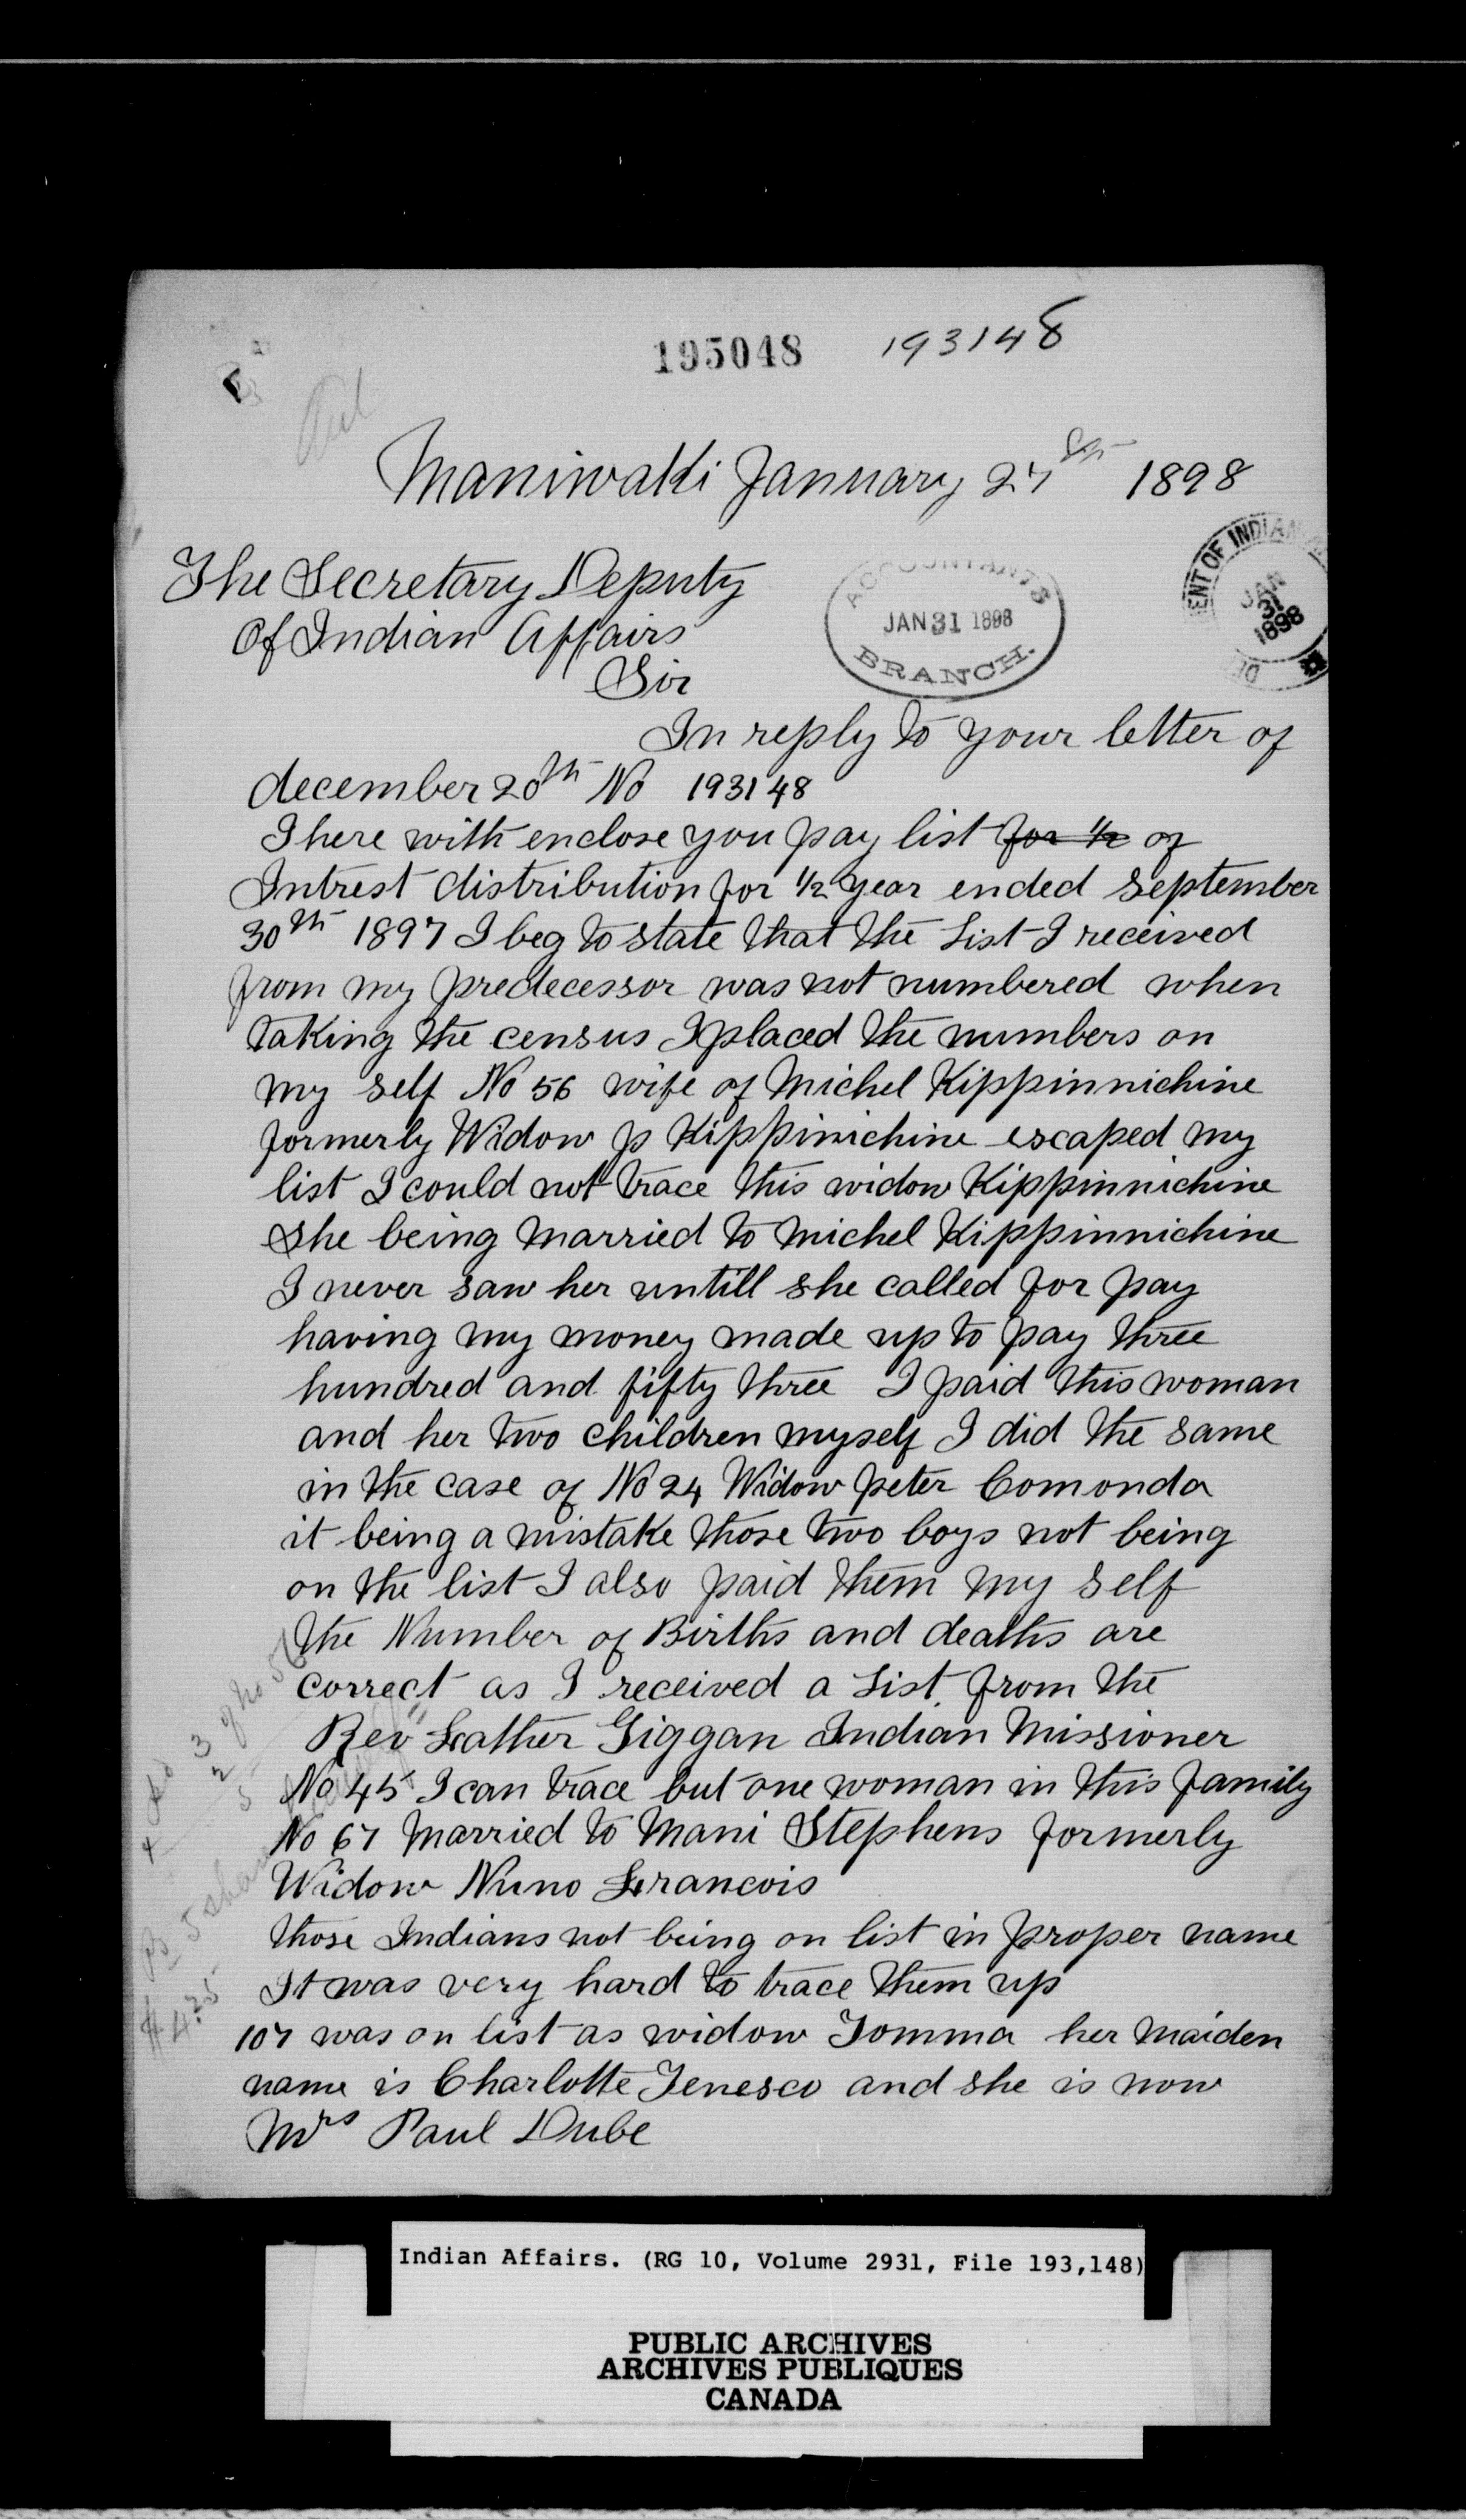 195048 193148
Maniwaki January 27th 1898
The Secretary Deputy
Of Indian Affairs
ACCOUNTANT'S
JAN 31 1898
BRANCH.
ENT OF INDIAN
JAN
31
1898
DE
Sir
In reply to your letter of
december 20th No 193148
I here with enclose you pay list for 1/2 of
Intrest distribution for 1/2 year ended September
30th 1897 I beg to state that the List I received
from my predecessor was not numbered when
taking the census I placed the numbers on
my self No 56 wife of Michel Kippinnichine
formerly Widow p Kippinichine escaped my
list I could not trace this widow Kippinnichine
She being married to Michel Kippinnichine
I never saw her untill she called for pay
having my money made up to pay three
hundred and fifty three I paid this woman
and her two children myself I did the same
in the case of No 24 Widow peter Comonda
it being a mistake those two boys not being
on the list I also paid them my self
the Number of Births and deaths are
correct as I received a List from the
Rev Father Giggan Indian Missioner
No 45 I can trace but one woman in this family
No 67 Married to Mani Stephens formerly
Widow Nuno Francois
those Indians not being on list in proper name
It was very hard to trace them up
107 was on list as widow Tomma her maiden
name is Charlotte Tenesco and she is now
Mrs Paul Dube
3
2
5
$ 4.25
Indian Affairs. (RG 10, Volume 2931, File 193,148)
PUBLIC ARCHIVES
ARCHIVES PUBLIQUES
CANADA